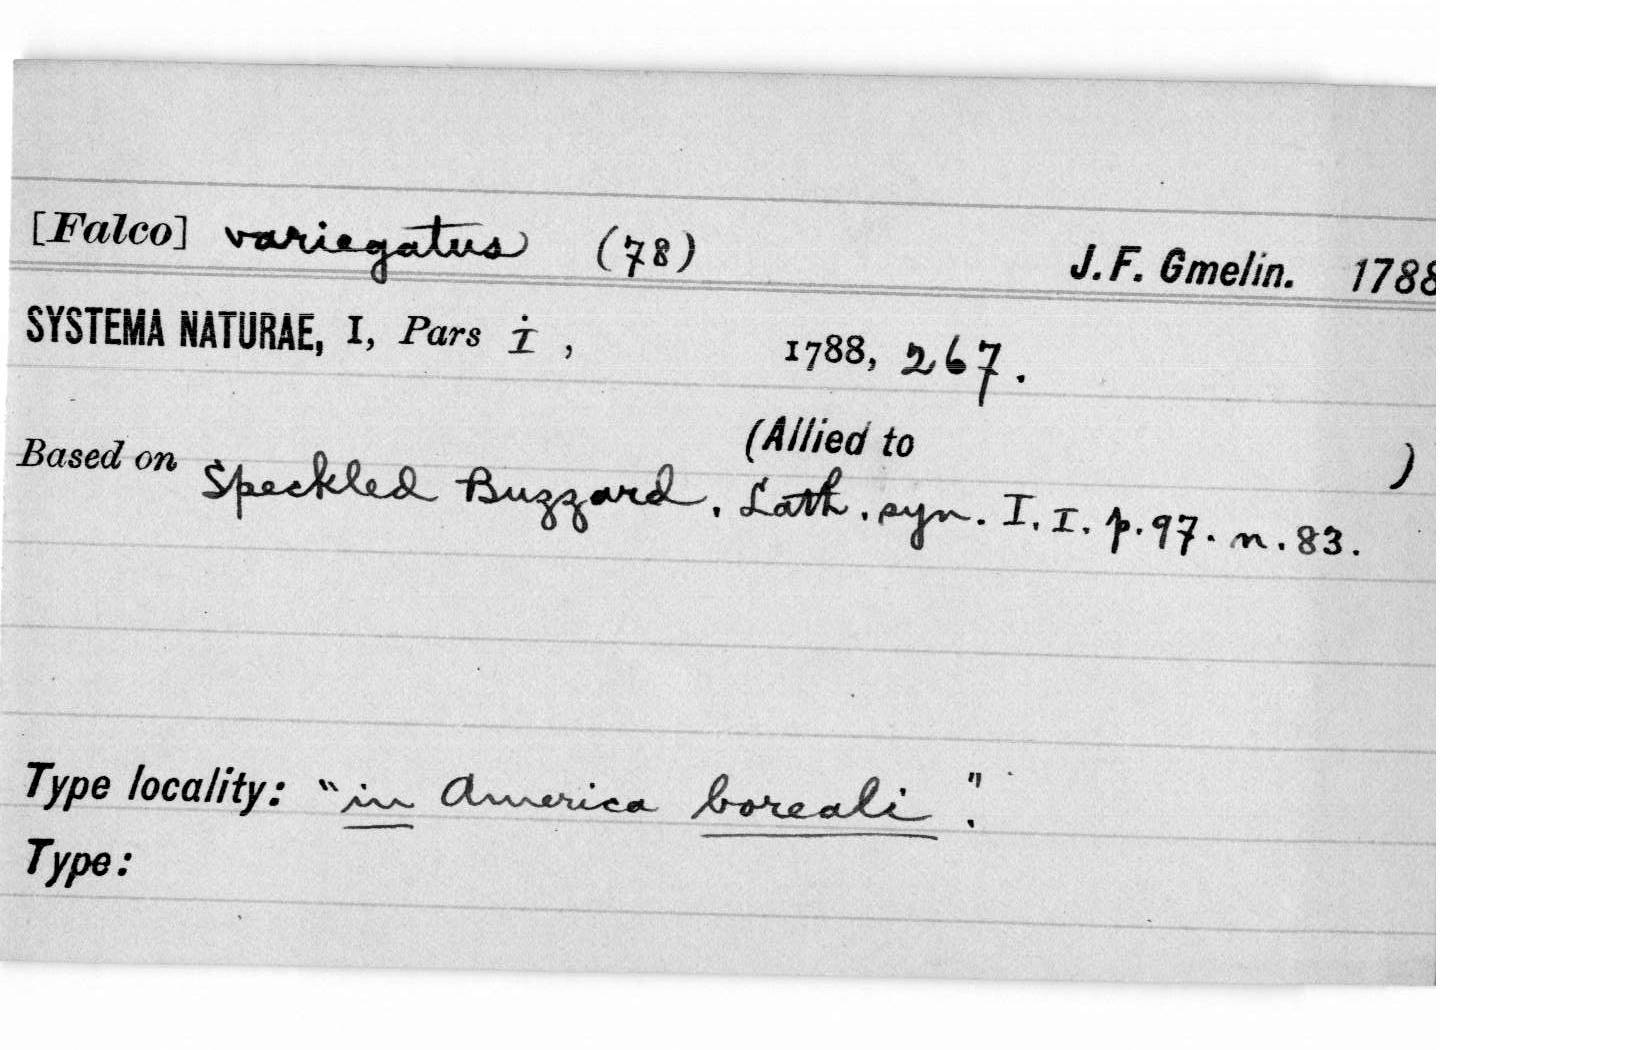 [Falco] variegatus (78) J. F. Gmelin. 1788
SYSTEMA NATURAE, I, Pars i, 1788, 267.
(Allied to )
Based on Speckled Buzzard. Lath. syn. I. I. p. 97. n. 83.
Type locality: "in America boreali".
Type: